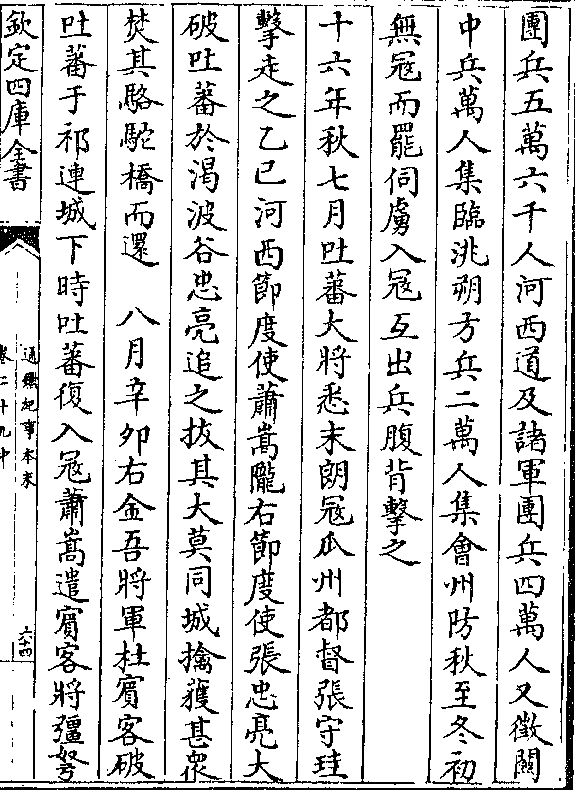 團兵五萬六千人河西道及諸軍團兵四萬人又徵關
中兵萬人集臨洮朔方兵二萬人集會州防秋至冬初
無寇而罷伺虜入寇互出兵腹背擊之
十六年秋七月吐蕃大將悉末朗寇瓜州都督張守珪
擊走之乙巳河西節度使蕭嵩隴右節度使張忠亮大
破吐蕃於渴波谷忠亮追之拔其大莫同城擒獲甚衆
焚其駱駝橋而還　八月辛卯右金吾將軍杜賓客破
吐蕃于祁連城下時吐蕃復入寇蕭嵩遣賓客將彊弩
欽定四庫全書
通鑑紀事本末
卷二十九中
六十四